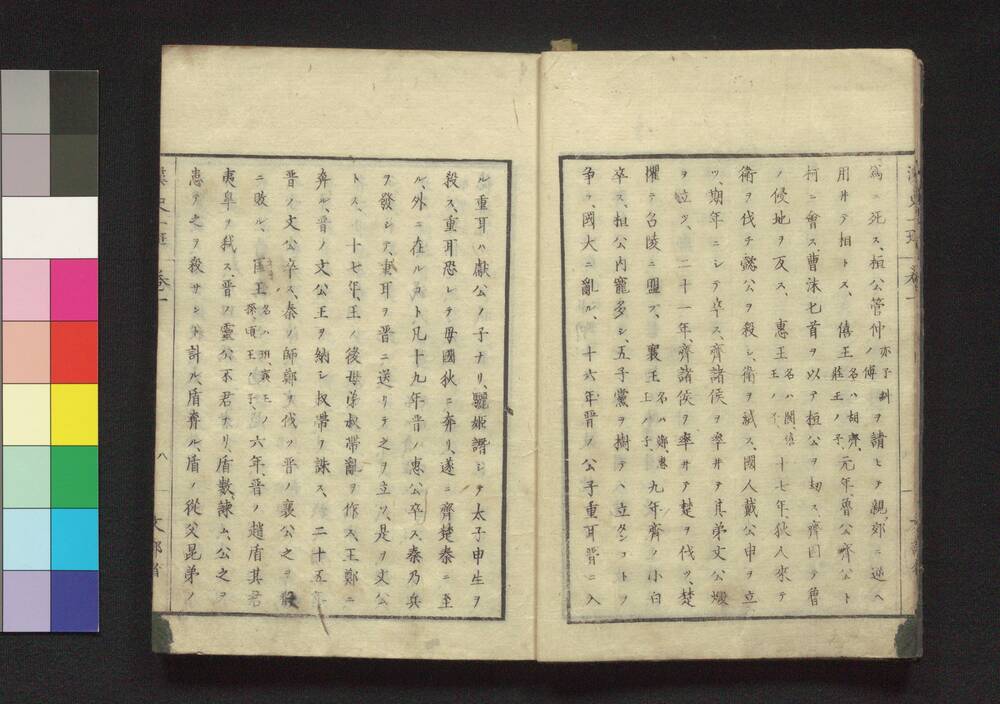 爲ニ死ス、桓公管仲ノ傅ヲ請ヒテ親郊ニ逆ヘ
亦子糾
用井テ相トス、僖王元年、魯公齊公ト
名ハ胡齊、
莊王ノ子、
柯ニ會ス、曹沫匕首ヲ以テ桓公ヲ劫ス、齊因テ魯
ノ侵地ヲ反ス、惠王十七年、狄人來テ
名ハ閬僖
王ノ子、
衛ヲ伐チ懿公ヲ殺シ、衛ヲ滅ス、國人戴公申ヲ立
ツ、期年ニシテ卒ス、齊諸侯ヲ率井テ其弟文公燬
ヲ立ツ、二十一年、齊諸侯ヲ率井テ楚ヲ伐ツ、楚
懼テ召陵ニ盟フ、襄王九年齊ノ小白
名ハ鄭惠
王ノ子、
卒ス、桓公内寵多シ、五子黨ヲ樹テヽ立タンコトヲ
争テ、國大ニ亂ル、十六年晋ノ公子重耳晋ニ入
ル、重耳ハ獻公ノ子ナリ、驪姫譖シテ太子申生ヲ
殺ス、重耳恐レテ母國狄ニ奔リ、遂ニ齊楚秦ニ至
ル、外ニ在ルコト凡十九年晋ノ惠公卒ス、秦乃兵
ヲ發シテ、重耳ヲ晋ニ送リテ之ヲ立ツ、是ヲ文公
トス、十七年、王ノ後母弟叔帶亂ヲ作ス、王鄭ニ
奔ル、晋ノ文公王ヲ納シ叔帶ヲ誅ス、二十五年
晋ノ文公卒ス、秦ノ師鄭ヲ伐ツ晋ノ襄公之ヲ
ニ敗ル、匡王六年、晋ノ趙盾其君
名ハ班襄王ノ
孫、頃王ノ子、
夷皐ヲ弑ス、晋ノ靈公不君ナリ、盾數諫ム、公之ヲ
患テ之ヲ殺サント計ル、盾奔ル、盾ノ從父昆弟ノ
漢史一班 卷一
八
文部省